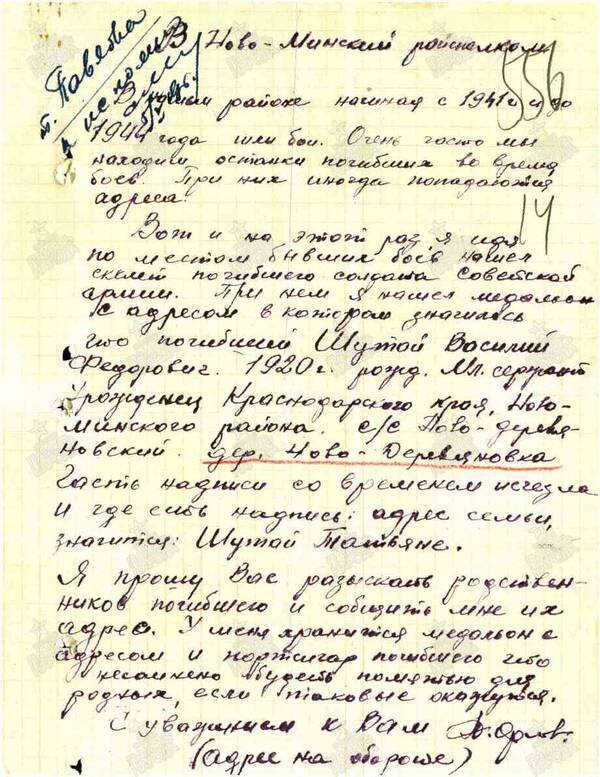 т. Павлова
к исполн.
В Ново-Минский райисполком
556
В нашем районе начиная с 1941 г и до
1944 года шли бои. Очень часто мы
находили останки погибших во время
боев. При них иногда попадаются
адреса.
14
Вот и на этот раз я идя
по местам бывших боев нашел
скелет погибшего солдата советской
армии. При нем я нашел медальон
с адресом в котором значилось
что погибший Шутай Василий
Федорович. 1920 г. рожд. Мл. сержант
Урожденец Краснодарского края, Ново-
Минского района. с/с Ново-деревя-
новский. дер. Ново-Деревяновка
Часть надписи со временем исчезла
и где есть надпись: адрес семьи,
значится: Шутай Татьяне.
Я прошу Вас разыскать родствен-
ников погибшего и сообщить мне их
адрес. У меня хранится медальон с
адресом и портсигар погибшего что
несомнено будеть помятью для
родных, если таковые окажутся.
С уважением к Вам Орлов.
(адрес на обороте)